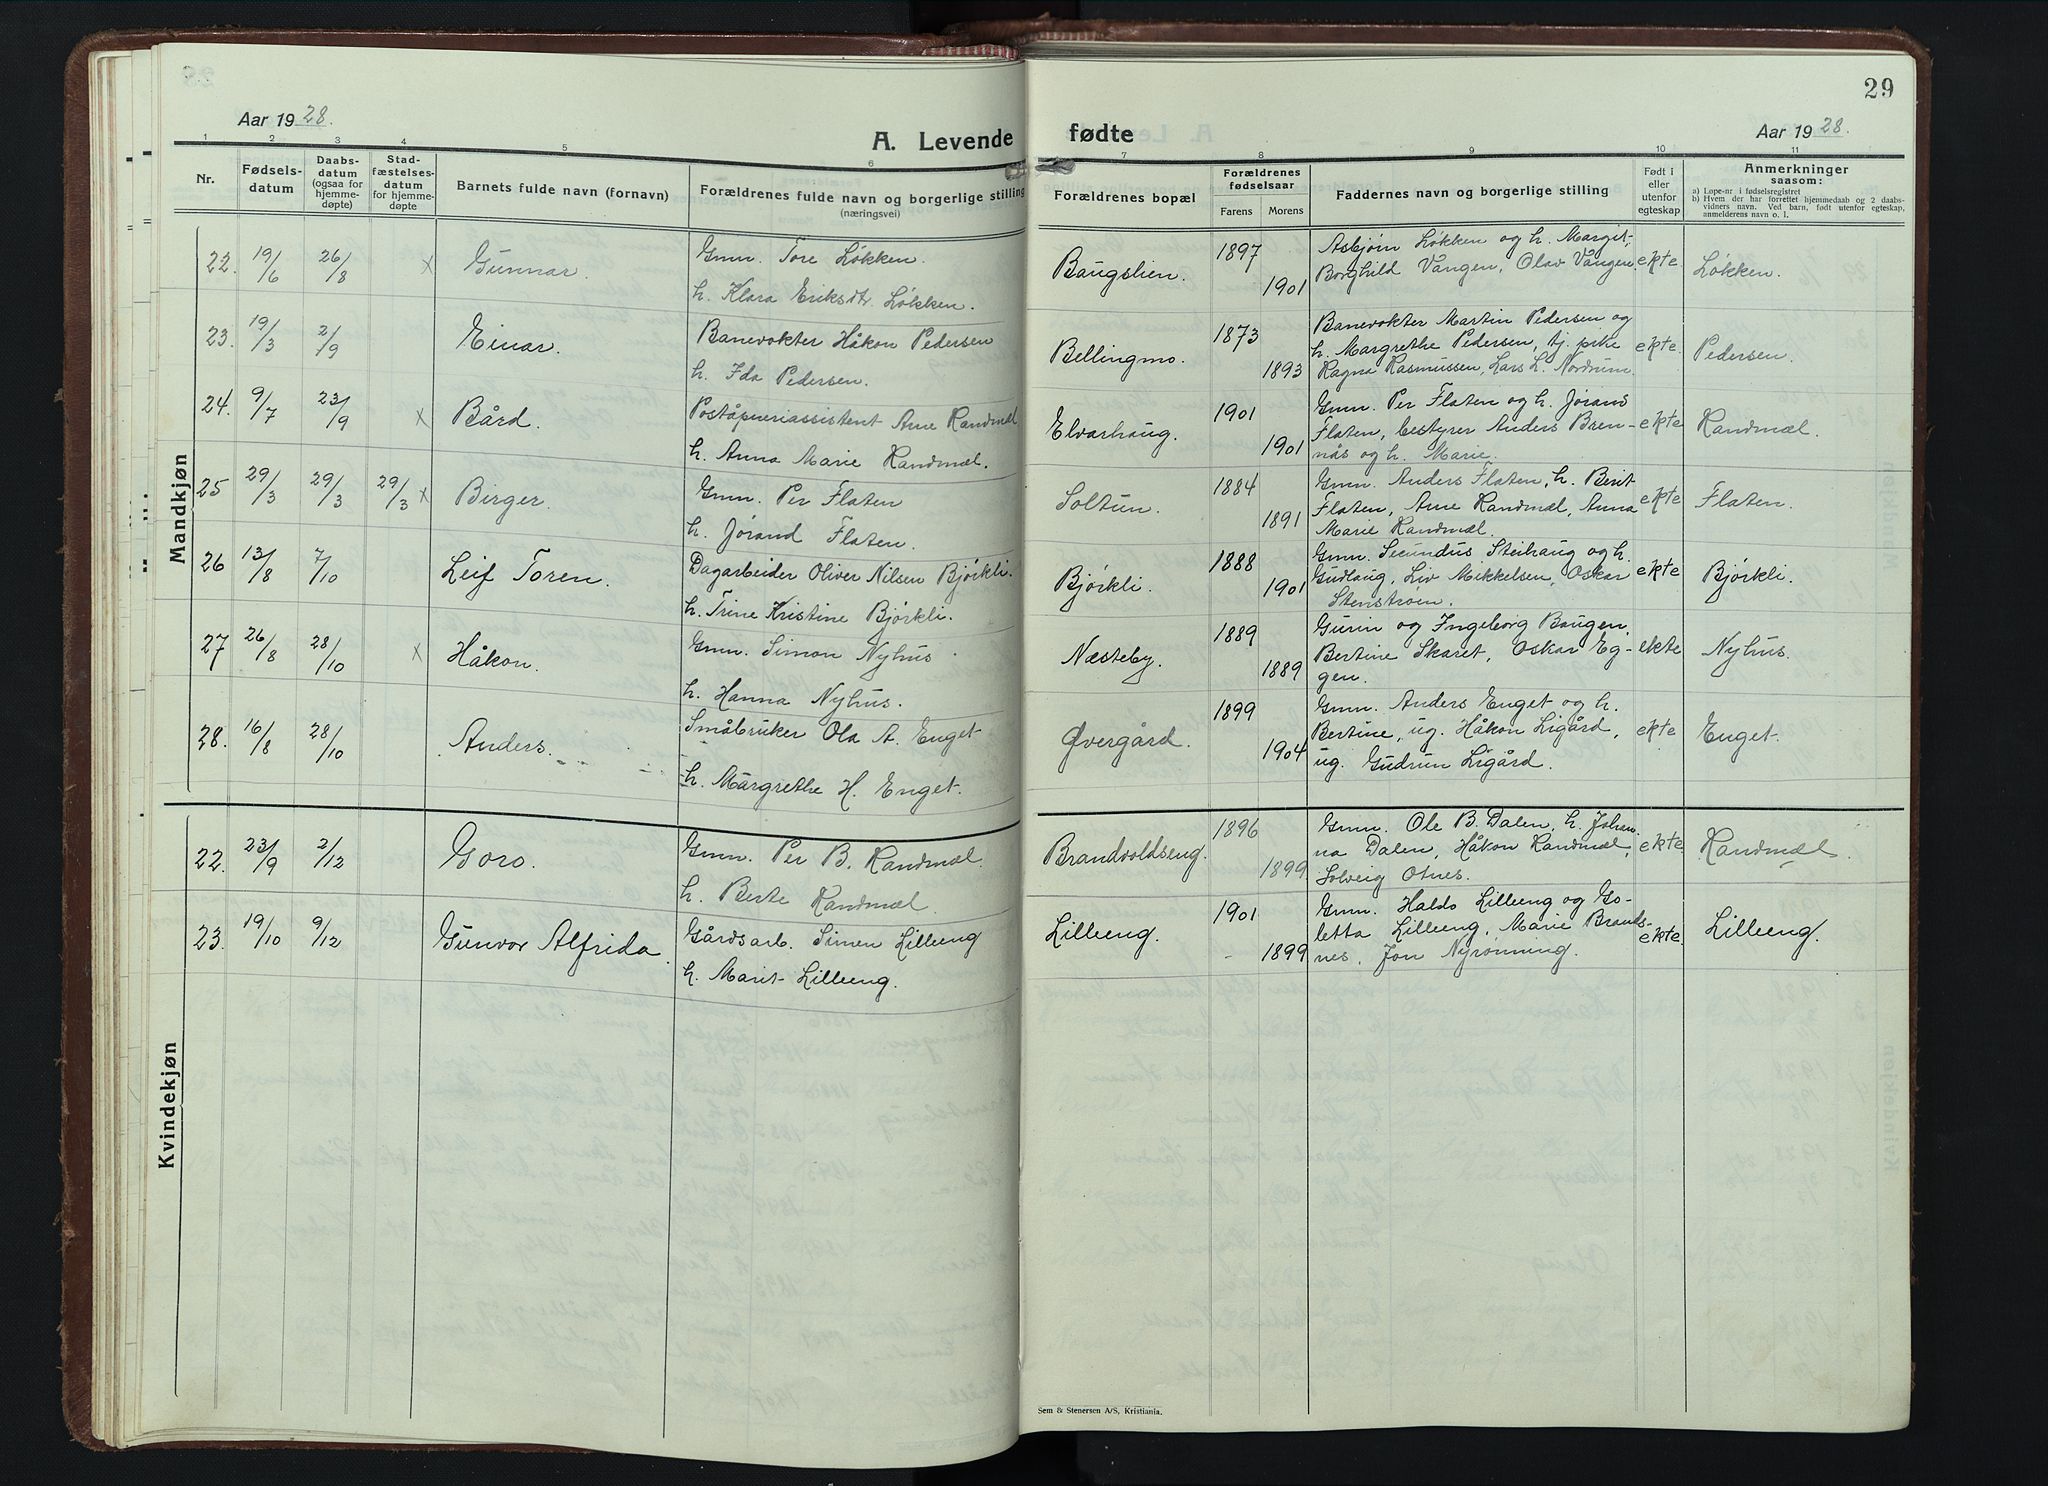 29
Aar 1928.
A. Levende
fødte
Aar 1928.
1 2 3 4 5 6 7 8 9 10 11
Nr.
Fødsels-
datum
Daabs-
datum
(ogsaa for
hjemme-
døpte)
Stad-
fæstelses-
datum
for hjemme-
døpte
Barnets fulde navn (fornavn)
Forældrenes fulde navn og borgerlige stilling
(næringsvei)
Forældrenes bopæl
Forældrenes
fødselsaar
Farens Morens
Faddernes navn og borgerlige stilling
Født i
eller
utenfor
egteskap
Anmerkninger
saasom:
a) Løpe-nr i fødselsregistret
b) Hvem der har forrettet hjemmedaab og 2 daabs-
vidners navn. Ved barn, født utenfor egteskap,
anmelderens navn o. l.
Mandkjøn
22. 19/6 26/8 x Gunnar. Gmn. Tore Løkken. Baugslien. 1897 Asbjørn Løkken og h. Margit, ekte. Løkken.
h. Klara Eriksdtr. Løkken. 1901 Borghild Vangen, Olav Vangen.
23. 19/3 2/9 Einar. Banevokter Håkon Pedersen Bellingmo. 1873 Banevokter Martin Pedersen og ekte. Pedersen.
h. Margrethe Pedersen, tj. pike
h. Ida Pedersen. 1893 Ragna Rasmussen, Lars L. Nordrum.
24. 9/7 23/9 x Bård. Poståpneriassistent Arne Randmæl Elvarhaug. 1901 Gmn. Per Flaten og h. Jørand ekte Randmæl.
Flaten, bestyrer Anders Bren-
h. Anna Marie Randmæl. 1901 nås og h. Marie.
25 29/3 29/3 29/3 x Birger. Gmn. Per Flaten Soltun. 1884 Gmn. Anders Flaten, h. Berit ekte Flaten.
Flaten, Arne Randmæl, Anna
h. Jørand Flaten. 1891 Marie Randmæl.
26 13/8 7/10 Leif Toren. Dagarbeider Oliver Nilsen Bjørkli. Bjørkli. 1888 Gmn. Secundus Steihaug og h. ekte Bjørkli.
Gudlaug, Liv Mikkelsen, Oskar
h. Trine Kristine Bjørkli. 1901 Stenstrøen.
27 26/8 28/10 x Håkon. Gmn. Simon Nyhus. Næsteby. 1889 Gurin og Ingeborg Baugen, ekte Nyhus.
Bertine Skaret, Oskar Eg-
h. Hanna Nyhus. 1889 gen.
28. 16/8 28/10 Anders. Småbruker Ola A. Enget Øvergård. 1899 Gmn. Anders Enget og h. ekte Enget.
Bertine, ug. Håkon Ligård,
h. Margrethe H. Enget. 1904 ug. Gudrun Ligård.
Kvindekjøn
22. 23/9 2/12 Goro. Gmn. Per B. Randmæl. Brandvoldseng. 1896 Gmn. Ole B. Dalen, h. Johan- ekte. Randmæl.
na Dalen, Håkon Randmæl,
h. Berte Randmæl. 1899 Solveig Otnes.
23. 19/10 9/12 Gunvor Alfrida. Gårdsarb. Simen Lilleeng Lilleeng. 1901 Gmn. Haldo Lilleeng og Go- ekte. Lilleeng.
letta Lilleeng, Marie Brands-
h. Marit Lilleeng. 1899 nes, Jon Nyrønning.
Sem & Stenersen A/S, Kristiania.